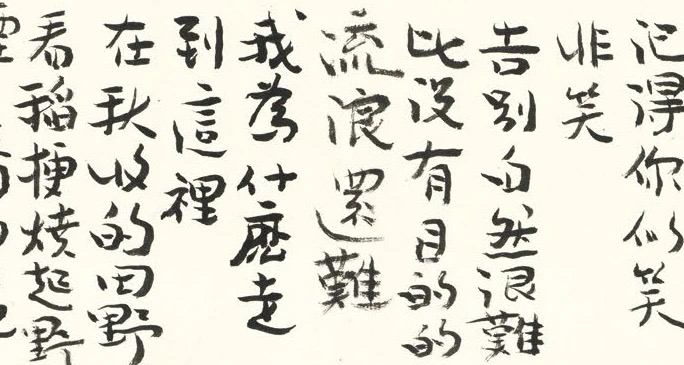 記得你似笑
非笑
告別自然很難
比沒有目的的
流浪還難
我為什麼走
到這裡
在秋收的田野
看稻梗燒起野